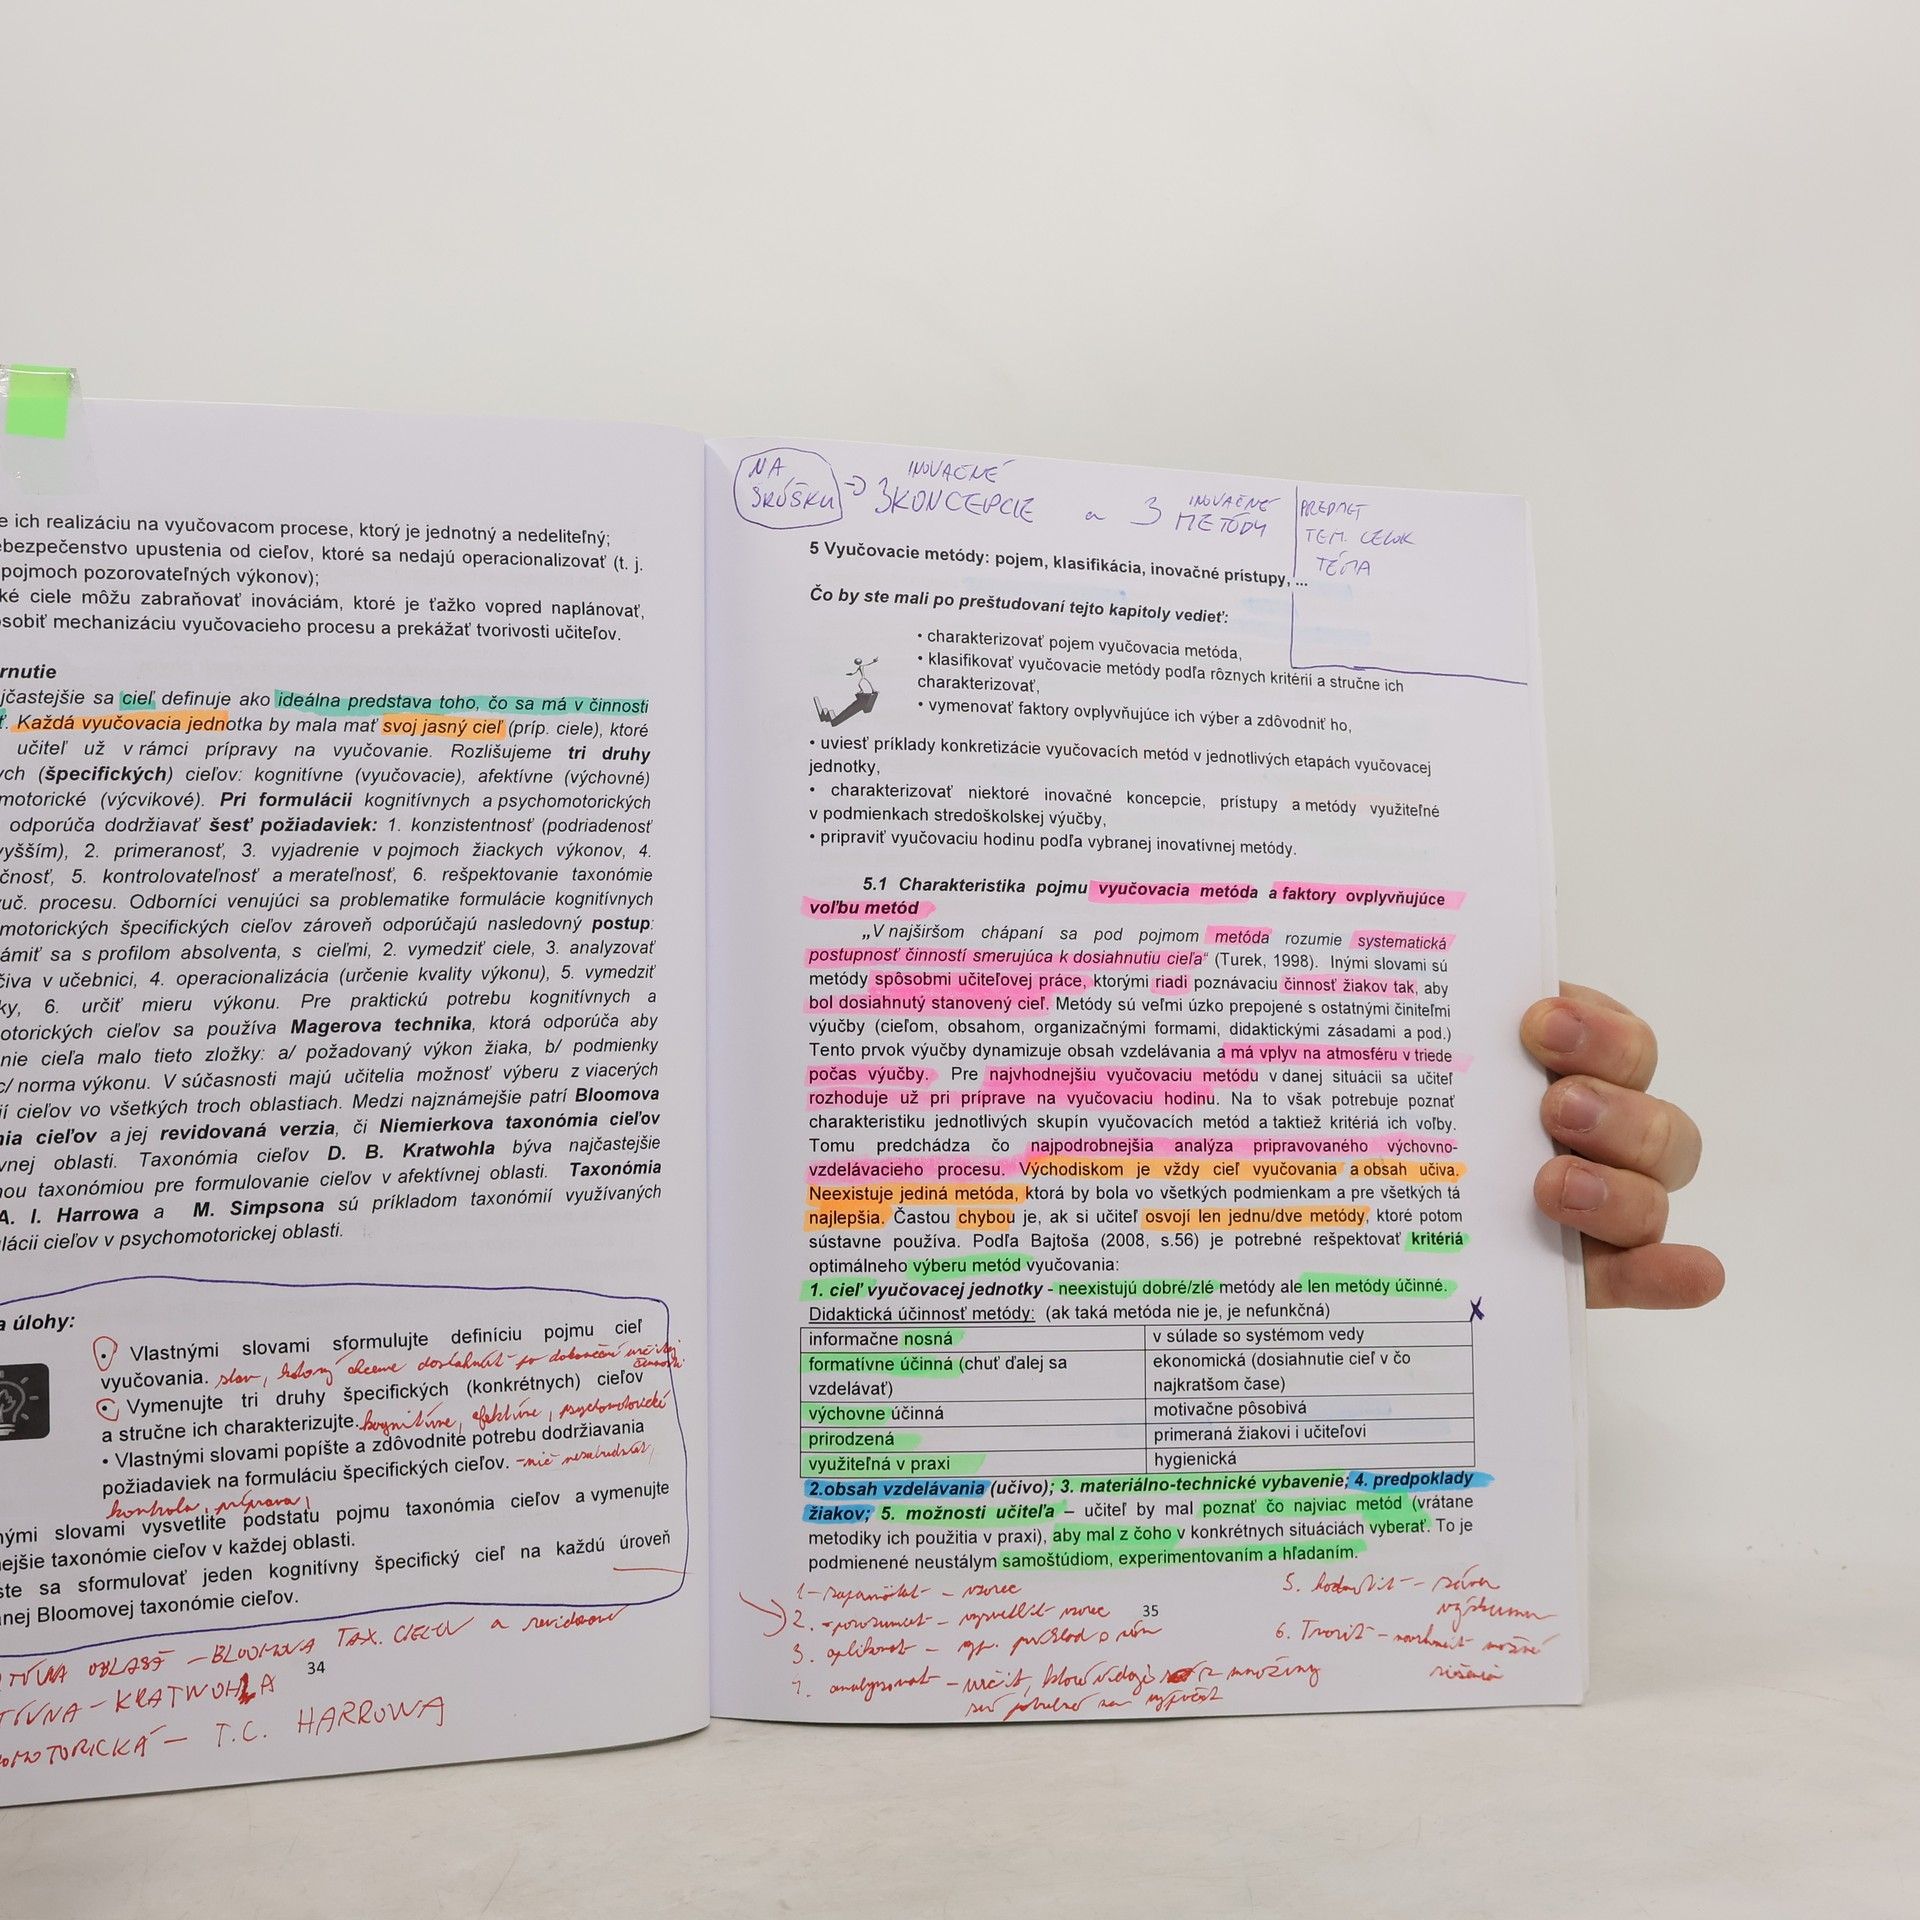 e ich realizáciu na vyučovacom procese, ktorý je jednotný a nedeliteľný;
ebezpečenstvo upustenia od cieľov, ktoré sa nedajú operacionalizovať (t. j.
pojmoch pozorovateľných výkonov);
ké ciele môžu zabraňovať inováciám, ktoré je ťažko vopred naplánovať,
sobiť mechanizáciu vyučovacieho procesu a prekážať tvorivosti učiteľov.
rnutie
jčastejšie sa cieľ definuje ako ideálna predstava toho, čo sa má v činnosti
ť. Každá vyučovacia jednotka by mala mať svoj jasný cieľ (príp. ciele), ktoré
učiteľ už v rámci prípravy na vyučovanie. Rozlišujeme tri druhy
ych (špecifických) cieľov: kognitívne (vyučovacie), afektívne (výchovné)
motorické (výcvikové). Pri formulácii kognitívnych a psychomotorických
odporúča dodržiavať šesť požiadaviek: 1. konzistentnosť (podriadenosť
vyšším), 2. primeranosť, 3. vyjadrenie v pojmoch žiackych výkonov, 4.
čnosť, 5. kontrolovateľnosť a merateľnosť, 6. rešpektovanie taxonómie
uč. procesu. Odborníci venujúci sa problematike formulácie kognitívnych
motorických špecifických cieľov zároveň odporúčajú nasledovný postup:
ámiť sa s profilom absolventa, s cieľmi, 2. vymedziť ciele, 3. analyzovať
čiva v učebnici, 4. operacionalizácia (určenie kvality výkonu), 5. vymedziť
ky, 6. určiť mieru výkonu. Pre praktickú potrebu kognitívnych a
otorických cieľov sa používa Magerova technika, ktorá odporúča aby
nie cieľa malo tieto zložky: a/ požadovaný výkon žiaka, b/ podmienky
c/ norma výkonu. V súčasnosti majú učitelia možnosť výberu z viacerých
í cieľov vo všetkých troch oblastiach. Medzi najznámejšie patrí Bloomova
nia cieľov a jej revidovaná verzia, či Niemierkova taxonómia cieľov
vnej oblasti. Taxonómia cieľov D. B. Kratwohla býva najčastejšie
nou taxonómiou pre formulovanie cieľov v afektívnej oblasti. Taxonómia
A. I. Harrowa a M. Simpsona sú príkladom taxonómií využívaných
lácii cieľov v psychomotorickej oblasti.
a úlohy:
• Vlastnými slovami sformulujte definíciu pojmu cieľ
vyučovania. ktorý chceme dosiahnuť po dokončení určitej činnosti
• Vymenujte tri druhy špecifických (konkrétnych) cieľov
a stručne ich charakterizujte. kognitívne, afektívne, psychomotorické
• Vlastnými slovami popíšte a zdôvodnite potrebu dodržiavania
požiadaviek na formuláciu špecifických cieľov. - nič nezabudnúť,
kontrola, príprava,
nými slovami vysvetlite podstatu pojmu taxonómia cieľov a vymenujte
nejšie taxonómie cieľov v každej oblasti.
ste sa sformulovať jeden kognitívny špecifický cieľ na každú úroveň
anej Bloomovej taxonómie cieľov.
TÍVNA OBLASŤ - BLOOMOVA TAX. CIEĽOV a revidovaná
34
TÍVNA - KRATWOHLA
OMOTORICKÁ - T.C. HARROWA
NA SKÚŠKU → 3 INOVAČNÉ KONCEPCIE a 3 INOVAČNÉ METÓDY
PREDMET
TEM. CELOK
TÉMA
5 Vyučovacie metódy: pojem, klasifikácia, inovačné prístupy, ...
Čo by ste mali po preštudovaní tejto kapitoly vedieť:
• charakterizovať pojem vyučovacia metóda,
• klasifikovať vyučovacie metódy podľa rôznych kritérií a stručne ich
charakterizovať,
• vymenovať faktory ovplyvňujúce ich výber a zdôvodniť ho,
• uviesť príklady konkretizácie vyučovacích metód v jednotlivých etapách vyučovacej
jednotky,
• charakterizovať niektoré inovačné koncepcie, prístupy a metódy využiteľné
v podmienkach stredoškolskej výučby,
• pripraviť vyučovaciu hodinu podľa vybranej inovatívnej metódy.
5.1 Charakteristika pojmu vyučovacia metóda a faktory ovplyvňujúce
voľbu metód
„V najširšom chápaní sa pod pojmom metóda rozumie systematická
postupnosť činností smerujúca k dosiahnutiu cieľa“ (Turek, 1998). Inými slovami sú
metódy spôsobmi učiteľovej práce, ktorými riadi poznávaciu činnosť žiakov tak, aby
bol dosiahnutý stanovený cieľ. Metódy sú veľmi úzko prepojené s ostatnými činiteľmi
výučby (cieľom, obsahom, organizačnými formami, didaktickými zásadami a pod.)
Tento prvok výučby dynamizuje obsah vzdelávania a má vplyv na atmosféru v triede
počas výučby. Pre najvhodnejšiu vyučovaciu metódu v danej situácii sa učiteľ
rozhoduje už pri príprave na vyučovaciu hodinu. Na to však potrebuje poznať
charakteristiku jednotlivých skupín vyučovacích metód a taktiež kritériá ich voľby.
Tomu predchádza čo najpodrobnejšia analýza pripravovaného výchovno-
vzdelávacieho procesu. Východiskom je vždy cieľ vyučovania a obsah učiva.
Neexistuje jediná metóda, ktorá by bola vo všetkých podmienkam a pre všetkých tá
najlepšia. Častou chybou je, ak si učiteľ osvojí len jednu/dve metódy, ktoré potom
sústavne používa. Podľa Bajtoša (2008, s.56) je potrebné rešpektovať kritériá
optimálneho výberu metód vyučovania:
1. cieľ vyučovacej jednotky - neexistujú dobré/zlé metódy ale len metódy účinné.
Didaktická účinnosť metódy: (ak taká metóda nie je, je nefunkčná)
informačne nosná v súlade so systémom vedy
formatívne účinná (chuť ďalej sa vzdelávať) ekonomická (dosiahnutie cieľ v čo najkratšom čase)
výchovne účinná motivačne pôsobivá
prirodzená primeraná žiakovi i učiteľovi
využiteľná v praxi hygienická
2.obsah vzdelávania (učivo); 3. materiálno-technické vybavenie; 4. predpoklady
žiakov; 5. možnosti učiteľa – učiteľ by mal poznať čo najviac metód (vrátane
metodiky ich použitia v praxi), aby mal z čoho v konkrétnych situáciách vyberať. To je
podmienené neustálym samoštúdiom, experimentovaním a hľadaním.
1 - zapamätať - vzorec
2. - porozumieť - vysvetliť vzorec
3. aplikovať - príklad
analyzovať - určiť, ktoré údaje z množiny
sú potrebné na výpočet
35
5. hodnotiť -
6. Tvoriť - navrhnúť možné
riešenia